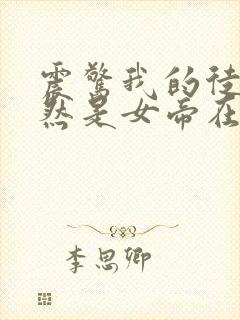 震惊我的徒
然是女帝在
李思卿